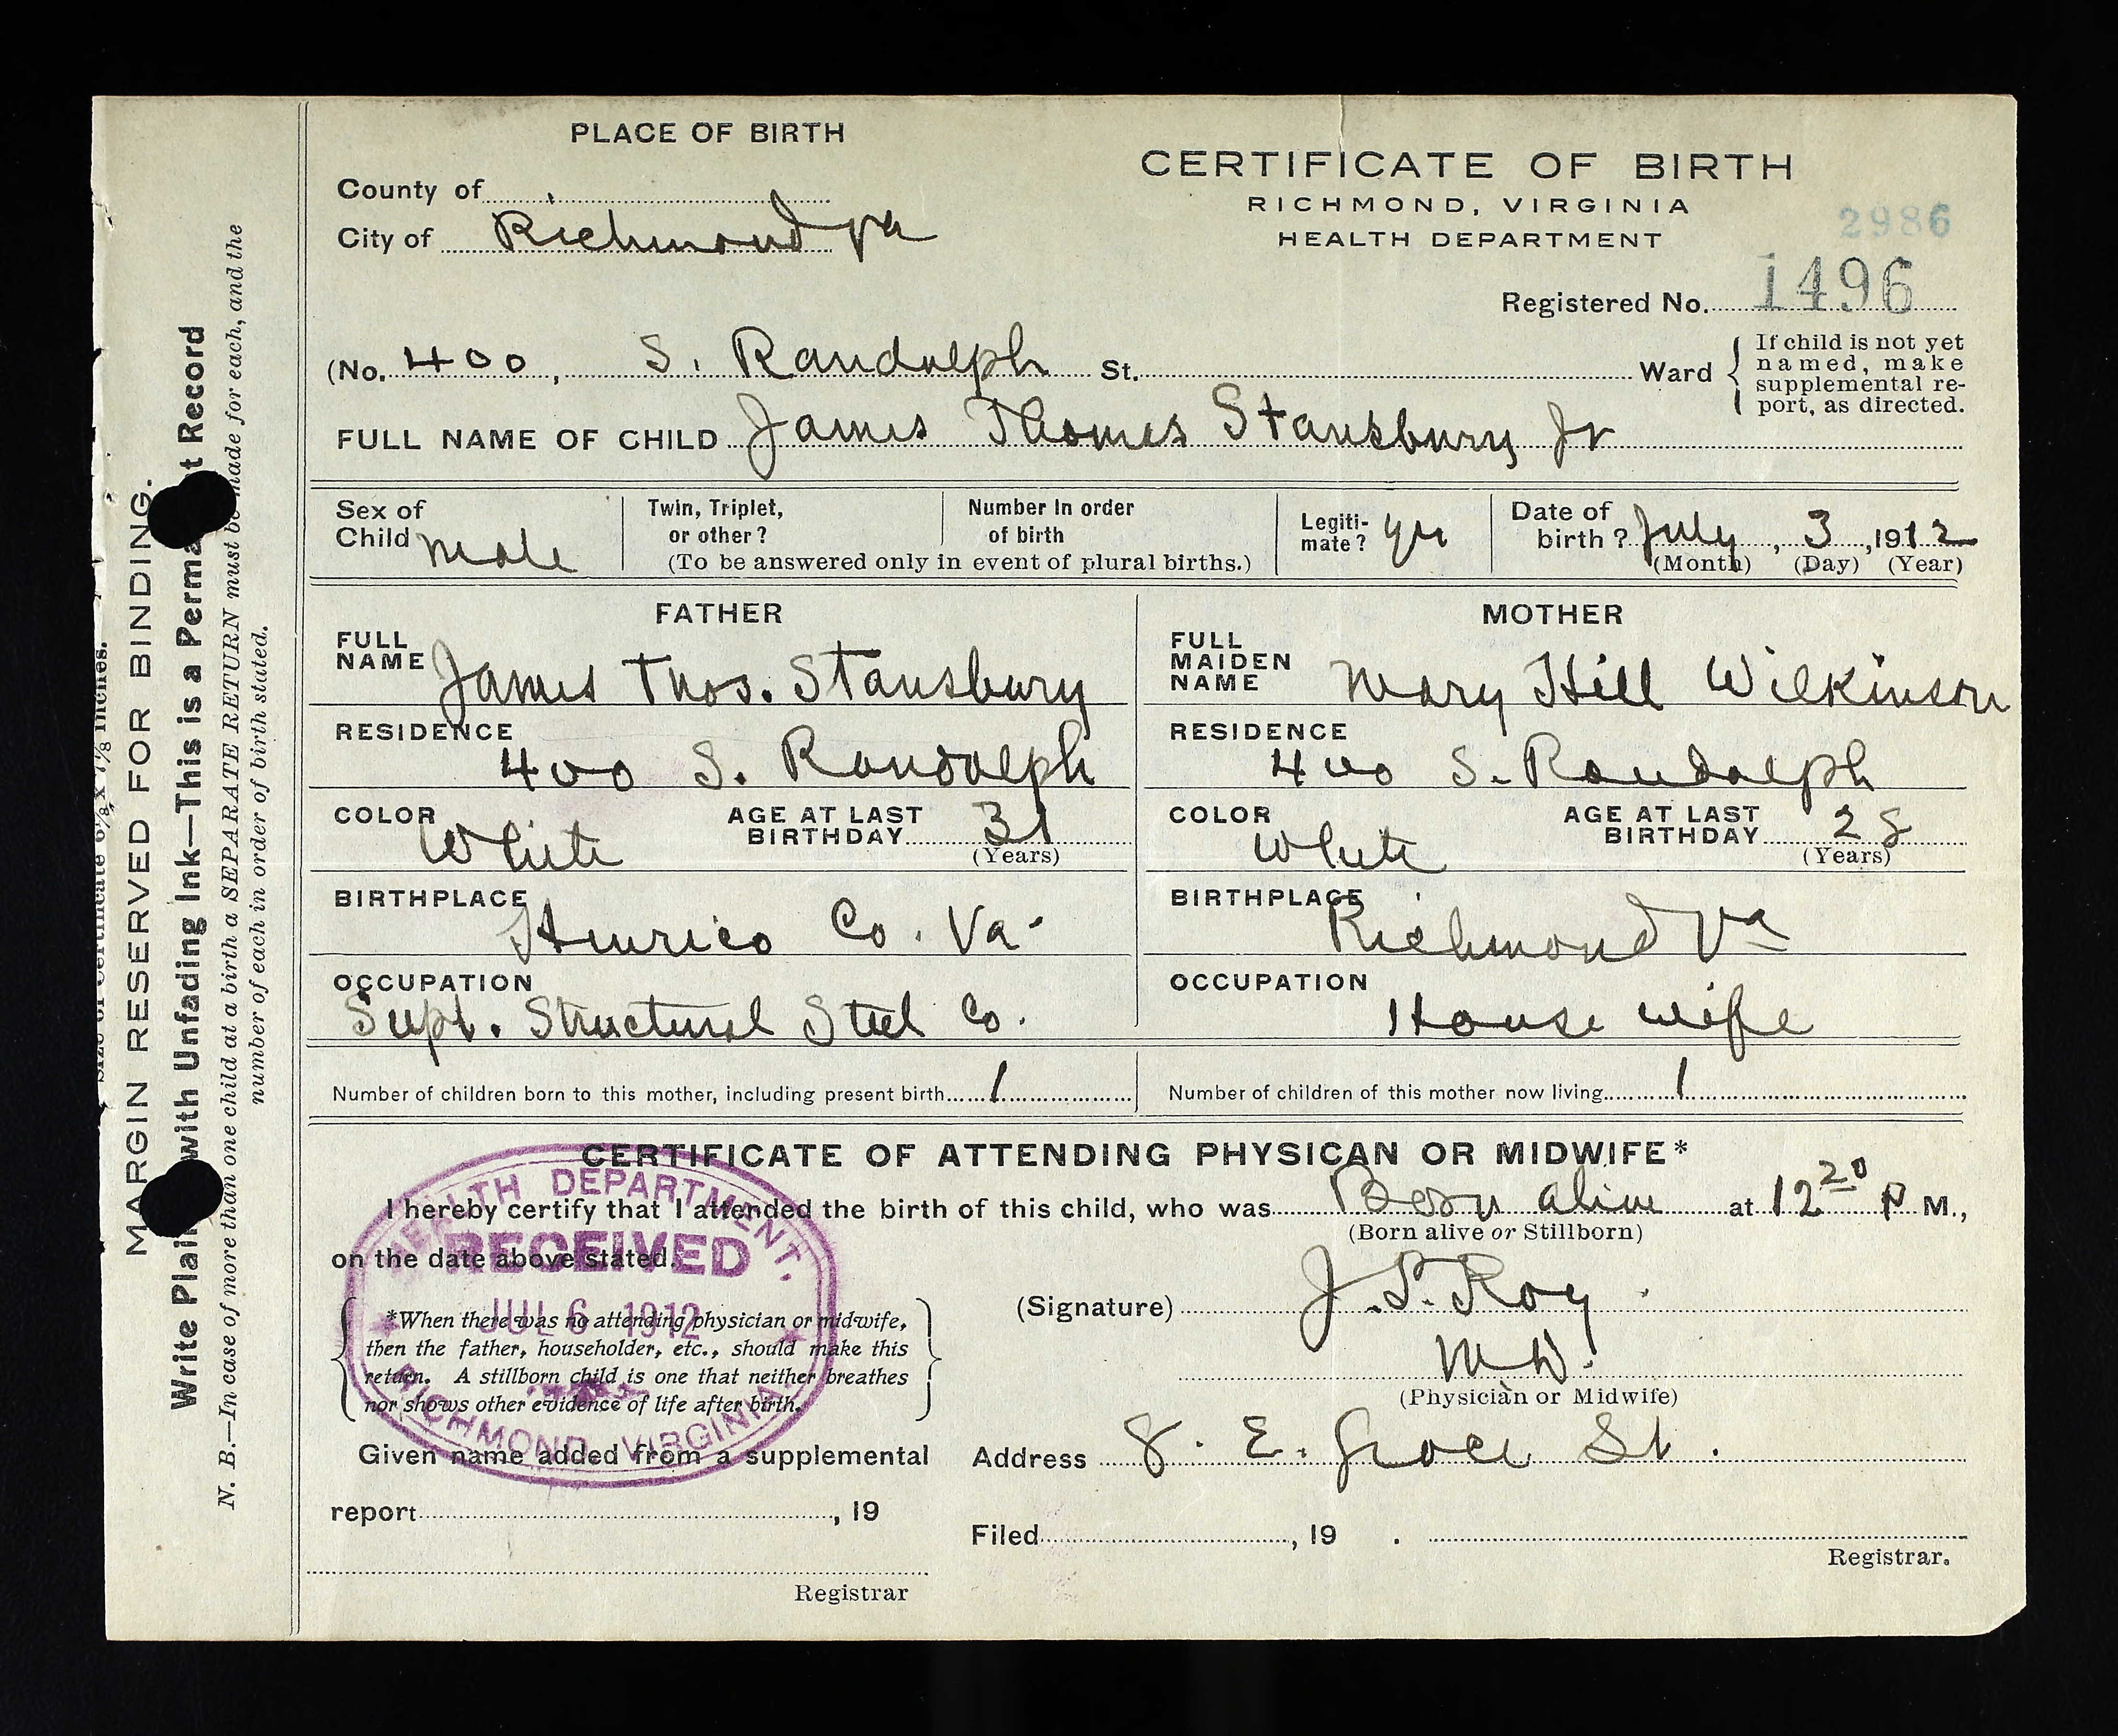 PLACE OF BIRTH
County of
City of Richmond Va
CERTIFICATE OF BIRTH
RICHMOND, VIRGINIA
HEALTH DEPARTMENT
2986
Registered No. 1496
(No. 400, S. Randolph St. Ward
If child is not yet
named, make
supplemental re-
port, as directed.
FULL NAME OF CHILD James Thomas Stansbury Jr
Sex of
Child Male
Twin, Triplet,
or other?
Number in order
of birth
(To be answered only in event of plural births.)
Legiti-
mate? yes
Date of
birth? July, 3, 1912
(Month) (Day) (Year)
FATHER
FULL
NAME James Thos. Stansbury
RESIDENCE
400 S. Randolph
COLOR White
AGE AT LAST
BIRTHDAY 31
(Years)
BIRTHPLACE
Henrico Co. Va.
OCCUPATION
Supt. Structural Steel Co.
MOTHER
FULL
MAIDEN
NAME Mary Hill Wilkinson
RESIDENCE
400 S. Randolph
COLOR White
AGE AT LAST
BIRTHDAY 28
(Years)
BIRTHPLACE
Richmond Va
OCCUPATION
House wife
Number of children born to this mother, including present birth 1
Number of children of this mother now living 1
CERTIFICATE OF ATTENDING PHYSICAN OR MIDWIFE*
I hereby certify that I attended the birth of this child, who was Born alive at 12 20 P M.,
(Born alive or Stillborn)
on the date above stated.
HEALTH DEPARTMENT.
RECEIVED
JUL 6 1912
RICHMOND, VIRGINIA.
*When there was no attending physician or midwife,
then the father, householder, etc., should make this
return. A stillborn child is one that neither breathes
nor shows other evidence of life after birth.
(Signature) J. P. Roy
M D.
(Physician or Midwife)
Given name added from a supplemental
report , 19
Registrar
Address 8. E. Grace St.
Filed , 19 .
Registrar.
Size of Certificate 6⅛ x 7⅞ Inches.
MARGIN RESERVED FOR BINDING.
Write Plain with Unfading Ink—This is a Perma t Record
N. B.—In case of more than one child at a birth a SEPARATE RETURN must be made for each, and the
number of each in order of birth stated.